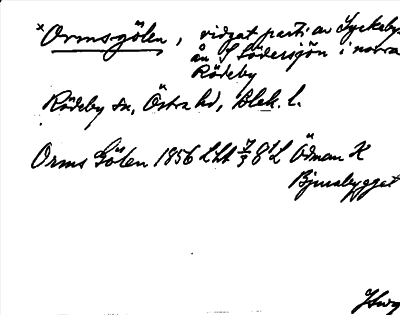 x Ormsgölen, vidgat parti av Lyckeby-
ån S Södersjön i norra
Rödeby
Rödeby sn, Östra hd, Blek. l.
Orms Gölen 1856 Lht 7/9 81 L Ödman K